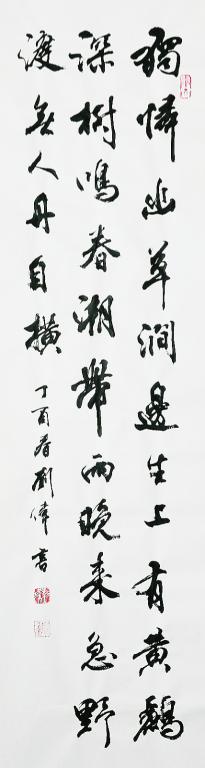 獨憐幽草澗邊生上有黃鸝
深樹鳴春潮帶雨晚來急野
渡無人舟自橫
丁酉春劉偉書